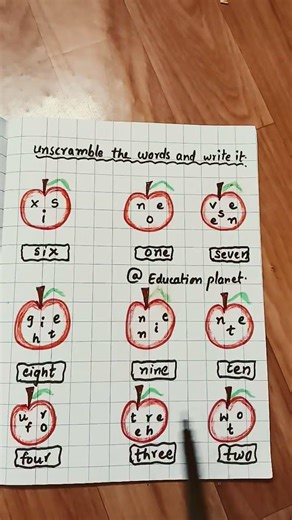 unscramble the words and write it.
x s i
n e o
v e s e n
six one seven
@ Education planet.
g i e h t
n e i n
n e t
eight nine ten
u r f o
t r e e h
w o t
four three two